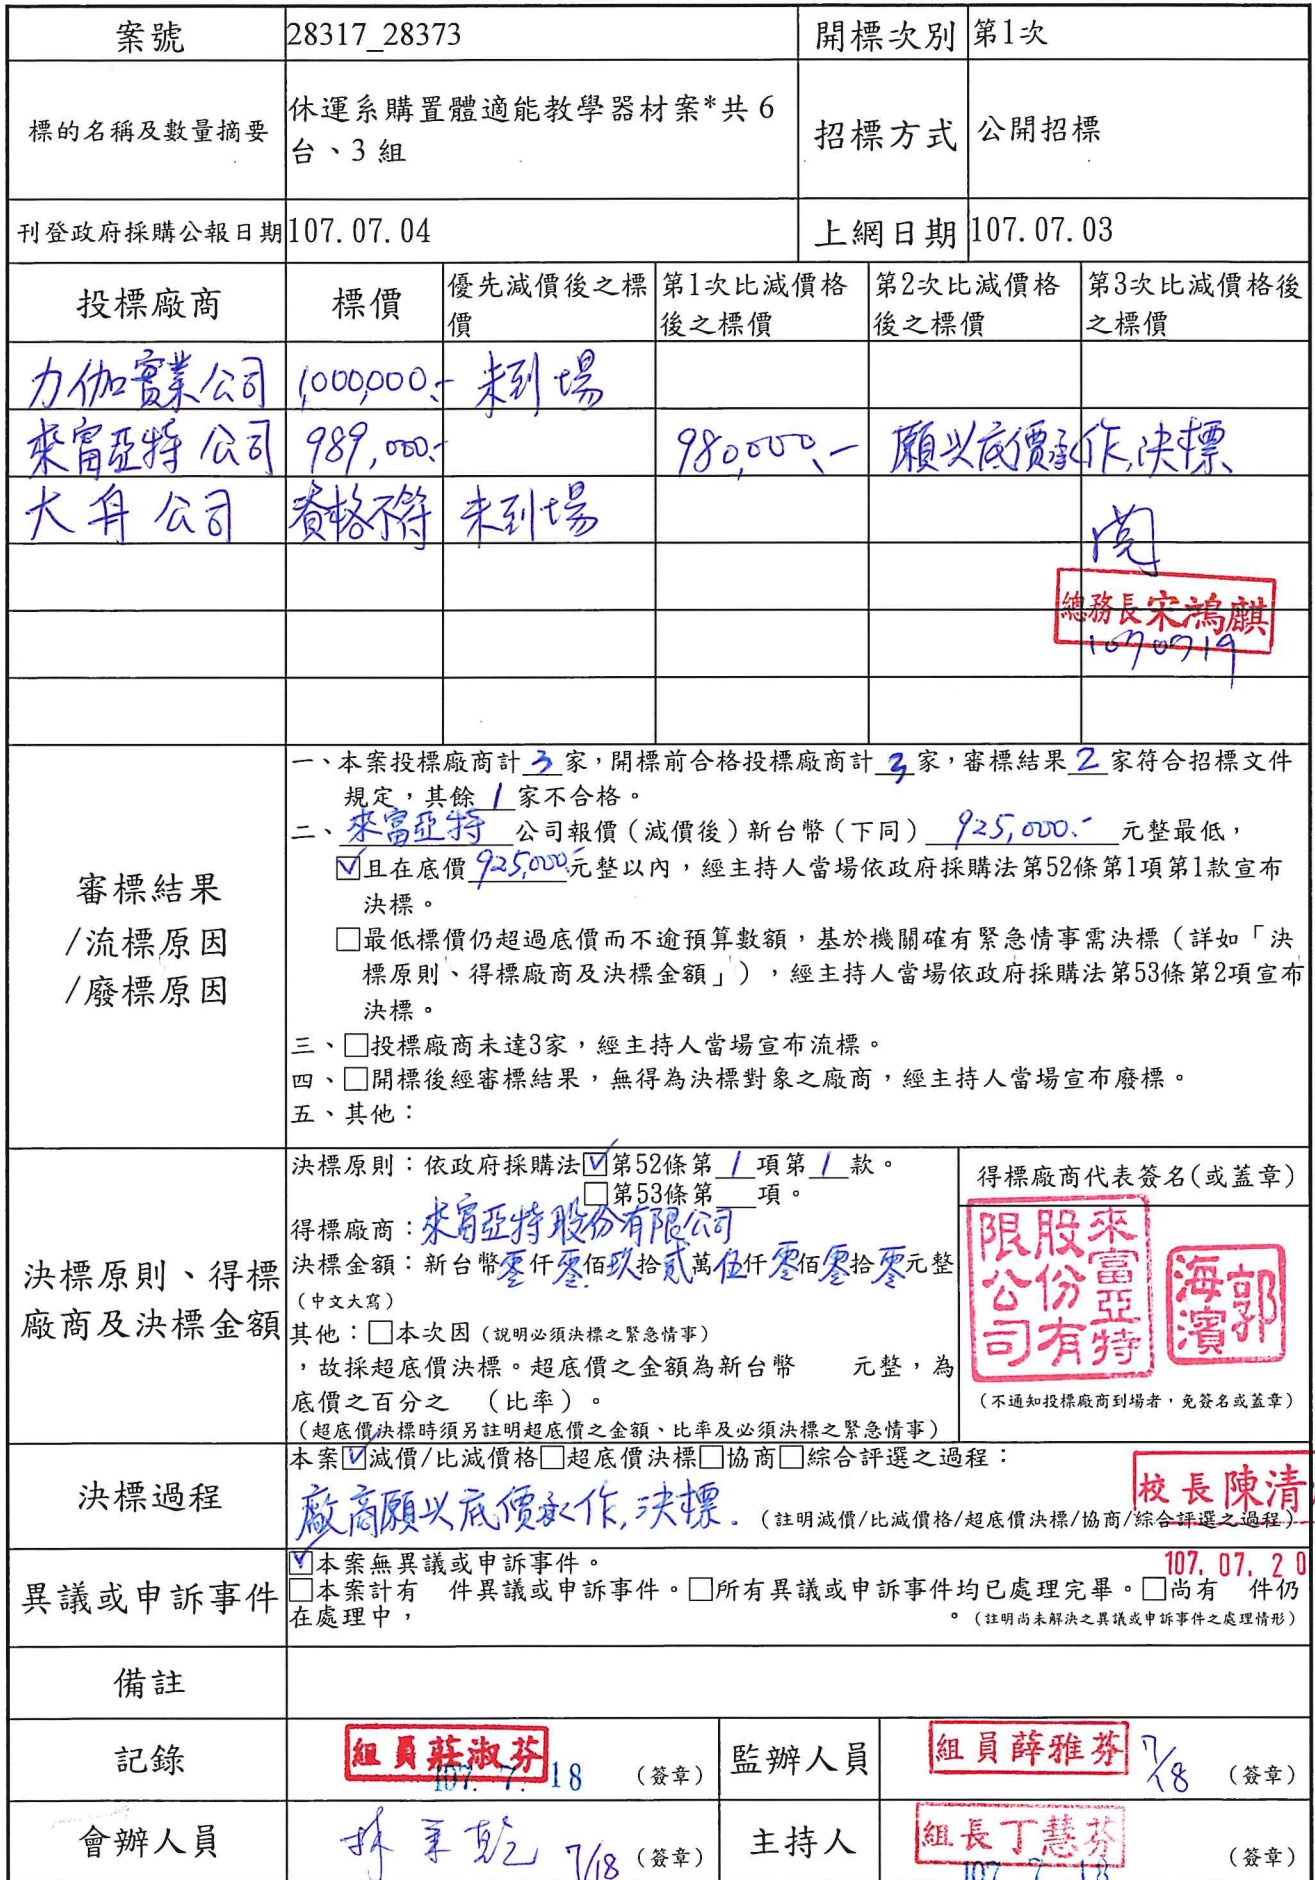 案號 28317_28373 開標次別 第1次
標的名稱及數量摘要 休運系購置體適能教學器材案*共6
台、3組 招標方式 公開招標
刊登政府採購公報日期 107.07.04 上網日期 107.07.03
投標廠商 標價 優先減價後之標 第1次比減價格 第2次比減價格 第3次比減價格後
價 後之標價 後之標價 之標價
力伽實業公司 1,000,000.- 未到場
來富亞特公司 989,000.- 980,000.- 願以底價承作,決標
大舟公司 資格不符 未到場
閱
總務長宋鴻麒
1070719
審標結果
/流標原因
/廢標原因
一、本案投標廠商計3家,開標前合格投標廠商計3家,審標結果2家符合招標文件
規定,其餘1家不合格。
二、來富亞特公司報價(減價後)新台幣(下同)925,000.-元整最低,
☑且在底價925,000.-元整以內,經主持人當場依政府採購法第52條第1項第1款宣布
決標。
□最低標價仍超過底價而不逾預算數額,基於機關確有緊急情事需決標(詳如「決
標原則、得標廠商及決標金額」),經主持人當場依政府採購法第53條第2項宣布
決標。
三、□投標廠商未達3家,經主持人當場宣布流標。
四、□開標後經審標結果,無得為決標對象之廠商,經主持人當場宣布廢標。
五、其他:
決標原則、得標
廠商及決標金額
決標原則:依政府採購法☑第52條第1項第1款。
□第53條第 項。
得標廠商:來富亞特股份有限公司
決標金額:新台幣零仟零佰玖拾貳萬伍仟零佰零拾零元整
(中文大寫)
其他:□本次因(說明必須決標之緊急情事)
,故採超底價決標。超底價之金額為新台幣 元整,為
底價之百分之 (比率)。
(超底價決標時須另註明超底價之金額、比率及必須決標之緊急情事)
得標廠商代表簽名(或蓋章)
來富亞特股份有限公司
郭海濱
(不通知投標廠商到場者,免簽名或蓋章)
決標過程
本案☑減價/比減價格□超底價決標□協商□綜合評選之過程:
廠商願以底價承作,決標.
(註明減價/比減價格/超底價決標/協商/綜合評選之過程)
校長陳清
107.07.20
異議或申訴事件
☑本案無異議或申訴事件。
□本案計有 件異議或申訴事件。□所有異議或申訴事件均已處理完畢。□尚有 件仍
在處理中, 。(註明尚未解決之異議或申訴事件之處理情形)
備註
記錄 組員莊淑芬 107. 7. 18 (簽章) 監辦人員 組員薛雅芬 7/18 (簽章)
會辦人員 7/18 (簽章) 主持人 組長丁慧芬 107 7 18 (簽章)